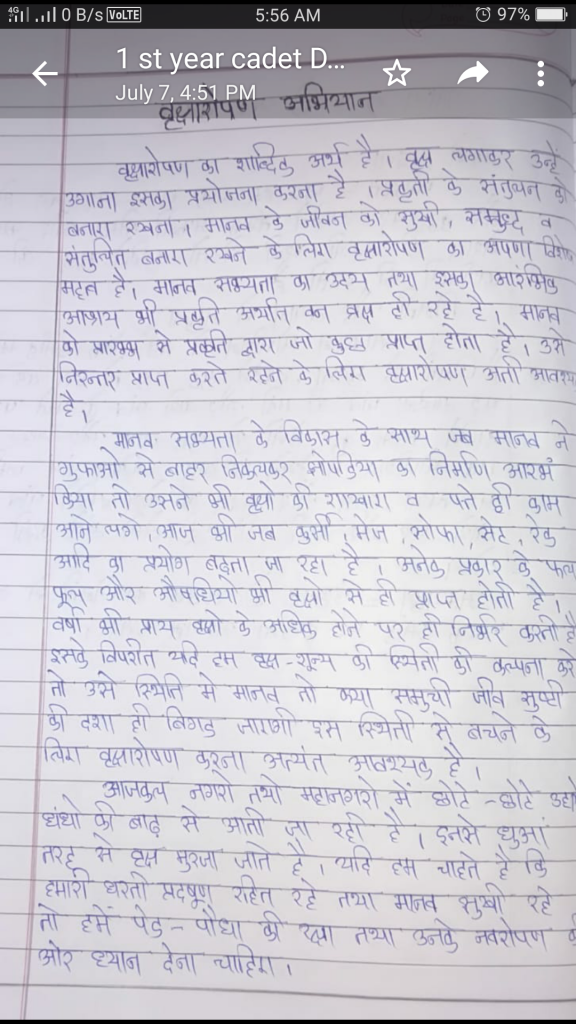 4G 0 B/s VoLTE 5:56 AM 97%
1 st year cadet D...
July 7, 4:51 PM
वृक्षारोपण अभियान
वृक्षारोपण का शाब्दिक अर्थ है। वृक्ष लगाकर उन्हें
उगाना इसका प्रयोजना करना है। प्रकृती के संतुलन को
बनारा रखना। मानव के जीवन को सुखी, समृद्ध व
संतुलित बनारा रखने के लिरा वृक्षारोपण का अपणा विशेष
महत्व है। मानव सभ्यता का उदय तथा इसका आरंभिक
आश्रय भी प्रकृति अर्थात वन व्रक्ष ही रहे है। मानव
को प्रारम्भ से प्रकृति द्वारा जो कुछ प्राप्त होता है, उसे
निरन्तर प्राप्त करते रहने के लिरा वृक्षारोपण अती आवश्य
है।
मानव सभ्यता के विकास के साथ जब मानव ने
गुफाओं से बाहर निकलकर झोपडिया का निर्माण आरंभ
किया तो उसने भी वृक्षो की शाखारा व पत्ते ही काम
आने लगे, आज भी जब कुर्सी, मेज, सोफा, सेट, रेक
आदि का प्रयोग बढ़ता जा रहा है। अनेक प्रकार के फल
फूल और औषधियो भी वृक्षो से ही प्राप्त होती है।
वर्षा भी प्राय वृक्षो के अधिक होने पर ही निर्भर करती है
इसके विपरीत यदि हम वृक्ष-शून्य की स्थिती की कल्पना करे
तो उसे स्थिति मे मानव तो क्या समुची जीव सृष्टी
की दशा ही बिगड जारागी इस स्थिती से बचने के
लिरा वृक्षारोपण करना अत्यंत आवश्यक है।
आजकल नगरो तथो महानगरो में छोटे-छोटे उद्यो
धंधो की बाढ़ से आती जा रही है। इनसे धुआं
तरह से वृक्ष मुरजा जाते है। यदि हम चाहते है कि
हमारी धरती प्रदषूण रहित रहे तथा मानव सुखी रहे
तो हमें पेड-पौधा की रक्षा तथा उनके नवरोपण की
ओर ध्यान देना चाहिरा।